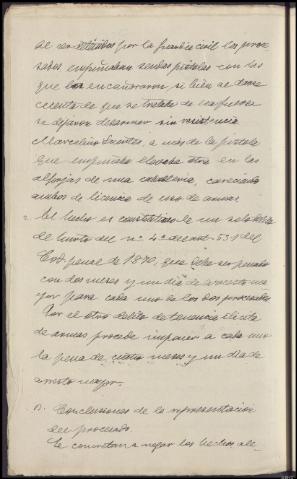 al ser detenidos por la guardia civil los proce-
sados empuñaban sendas pistolas con las
que los encañonaron si bien al darse
cuenta de que se trataba de la fuerza
se dejaron desarmar sin resistencia
Marcelino Fuentes, a más de la pistola
que empuñaba llevaba otra en las
alforjas de una caballería, careciendo
ambos de licencia de uso de armas
hecho es constitutivo de un solo delito
de hurto del nº 4º del art. 531 del
Cod. penal de 1870, que debe ser penado
con dos meses y un día de arresto ma-
yor para cada uno de los dos procesados
Por el otro delito de tenencia ilícita
de armas procede imponer a cada uno
la pena de cuatro meses y un día de
arresto mayor.-
Conclusiones de la representación
del procesado
Se concretan a negar los hechos ale-